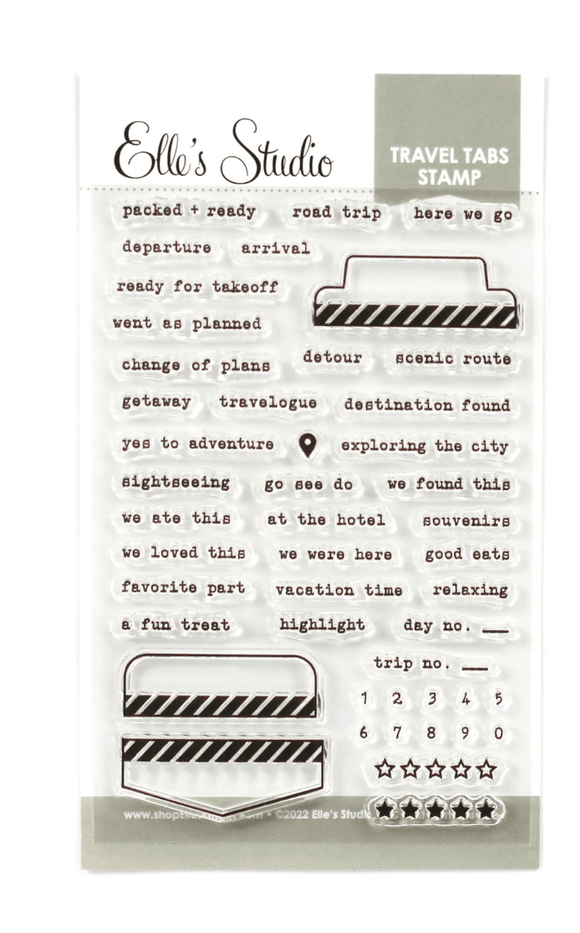 Elle's Studio
TRAVEL TABS
STAMP
packed + ready road trip here we go
departure arrival
ready for takeoff
went as planned
change of plans detour scenic route
getaway travelogue destination found
yes to adventure exploring the city
sightseeing go see do we found this
we ate this at the hotel souvenirs
we loved this we were here good eats
favorite part vacation time relaxing
a fun treat highlight day no. __
trip no. __
1 2 3 4 5
6 7 8 9 0
©2022 Elle's Studio